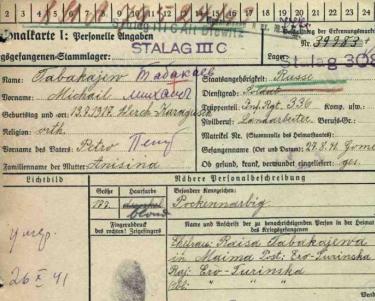 3 4 5 6 7 8 9 10 11 12 13 14 15 16 17 18 19 20 21 22 23 24
onalkarte I: Personelle Angaben
STALAG III C
Beschriftung der Erkennungsmarke
Nr. 39983
gsgefangenen-Stammlager:
Lager:
Stalag 308
Name: Tabakajew Табакаев
Staatsangehörigkeit: Russe
Vorname: Michail Михаил
Dienstgrad: Soldat
Truppenteil: Inf. Rgt. 336 Komp. usw.:
Geburtstag und -ort: 13.8.1917
Zivilberuf: Landarbeiter Berufs-Gr.:
Religion: orth.
Matrikel Nr. (Stammrolle des Heimatstaates):
Vorname des Vaters: Petro Петр
Gefangennahme (Ort und Datum): 27.8.41
Familienname der Mutter: Anisina
Ob gesund, krank, verwundet eingeliefert: ges.
Lichtbild
Nähere Personalbeschreibung
Größe Haarfarbe Besondere Kennzeichen:
dunkel
blond
Pockennarbig
Fingerabdruck
des rechten! Zeigefingers
Name und Anschrift der zu benachrichtigenden Person in der Heimat
des Kriegsgefangenen
Ehefrau: Raisa Tabakajewa
in Maima
умер
26 X 41